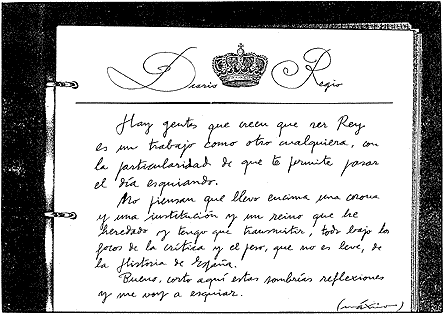 Diario Regio
Hay gentes que creen que ser Rey
es un trabajo como otro cualquiera, con
la particularidad de que te permite pasar
el día esquiando.
No piensan que llevo encima una corona
y una institución y un reino que he
heredado y tengo que transmitir, todo bajo los
focos de la crítica y el peso, que no es leve, de
la Historia de España.
Bueno, corto aquí estas sombrías reflexiones
y me voy a esquiar.
(máximo)